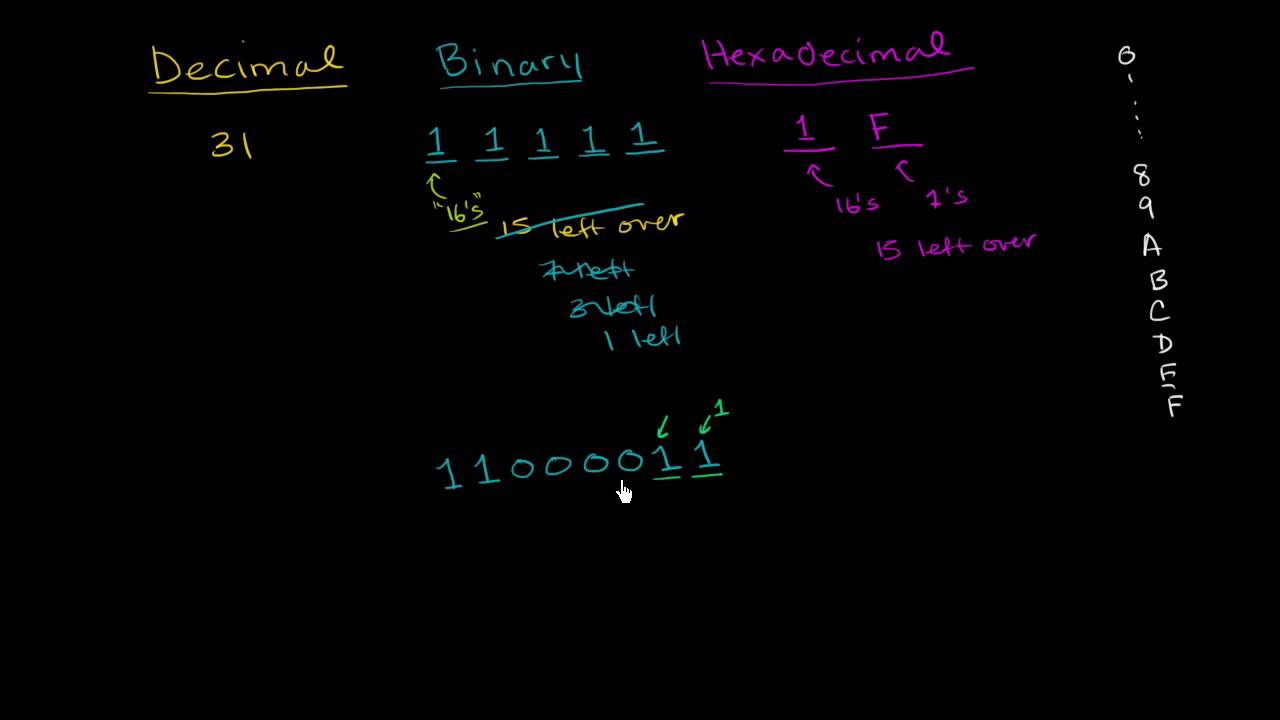 Decimal Binary Hexadecimal
31 1 1 1 1 1 1 F
"16's" 16's 1's
15 left over 15 left over
7 left
3 left
1 left
1
1 1 0 0 0 0 1 1
0
8
9
A
B
C
D
E
F